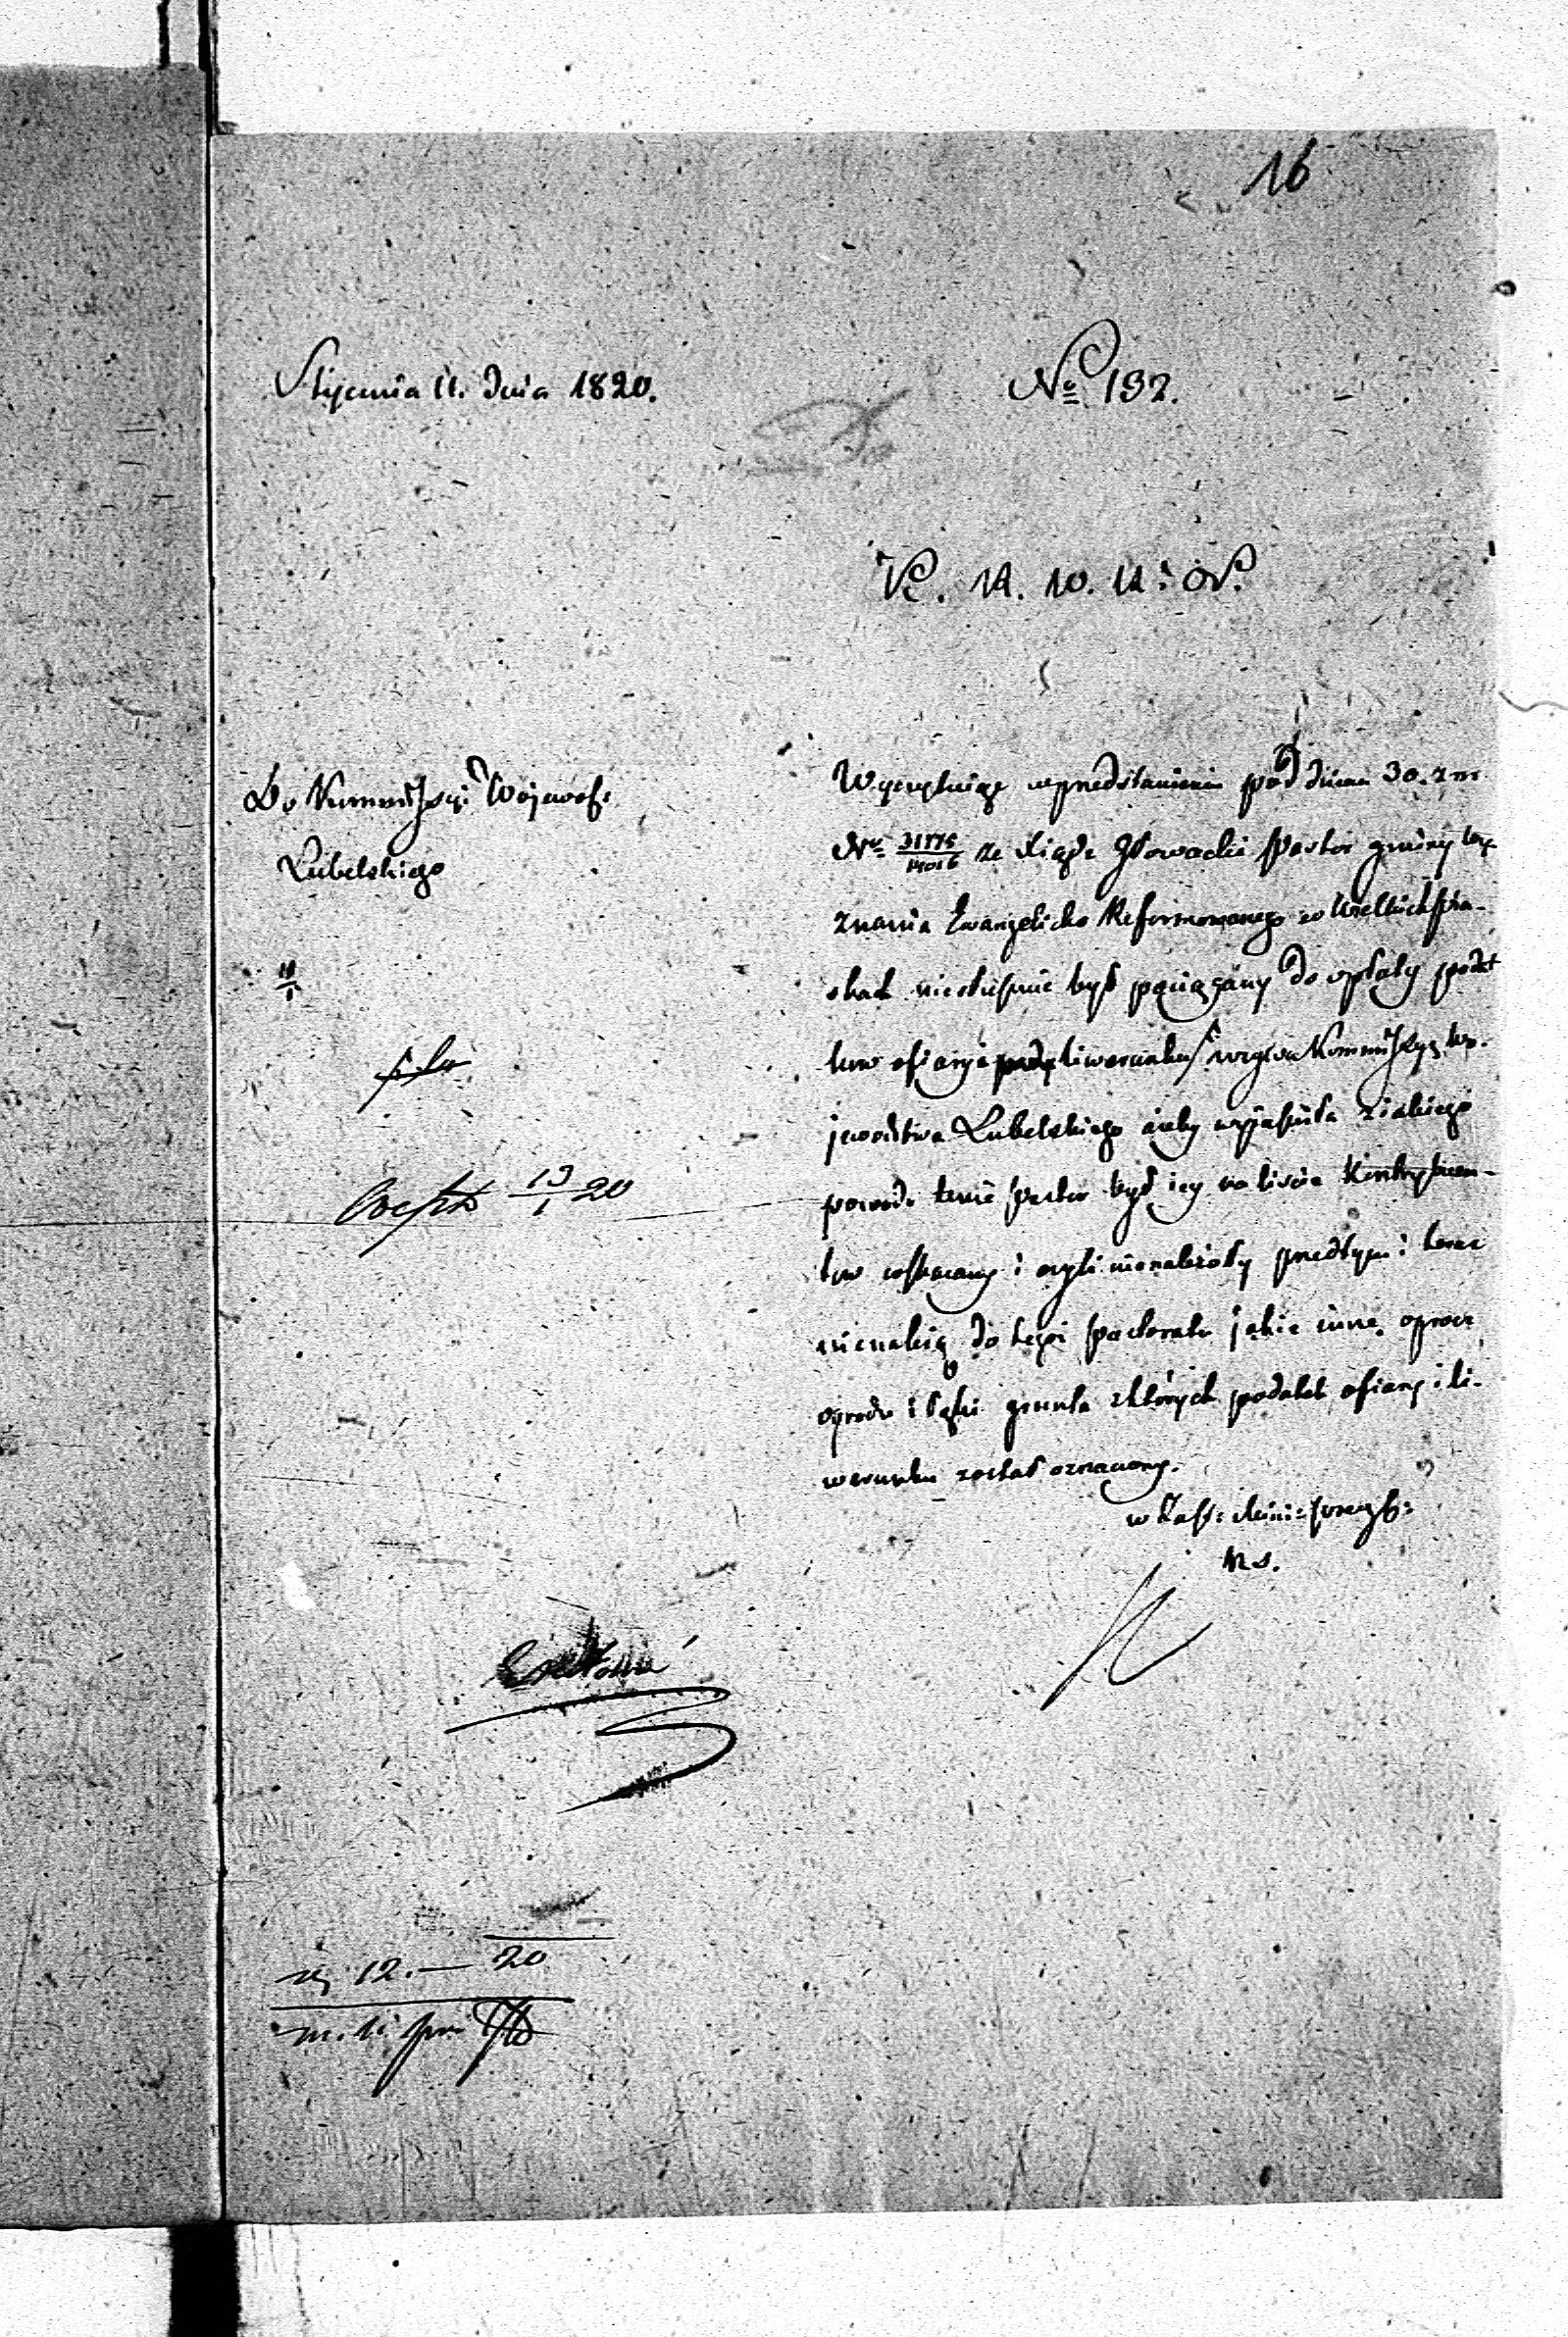 16
Stycznia 11. dnia 1820.
No 192.
K. 14. 10. 11:
Do Kommissyi Wojewod:
Lubelskiego
Wyczytując w przedstawieniu pod dniem 30. z m
No 31775/14016 że Xiądz Głowacki Pastor gminy wy-
znania Ewangelicko Reformowanego w Wielkich
niesłusznie był pociągany do opłaty podat
ków ofiary i liwerunku, wzywa Kommissyą Wo-
jewództwa Lubelskiego ażeby wyjaśniła z jakiego
powodu tenże Pastor był iey na liście Kontrybuen-
tów i czyli nienależały przedtym i teraz
nienależą do tegoż Pastoratu jakie inne oprócz
ogrodu i łąki grunta z których podatek ofiary i li-
werunku został oznaczony.
w Zast: Mini: Prezyd:
R. S.
13/1 20
12. — 20